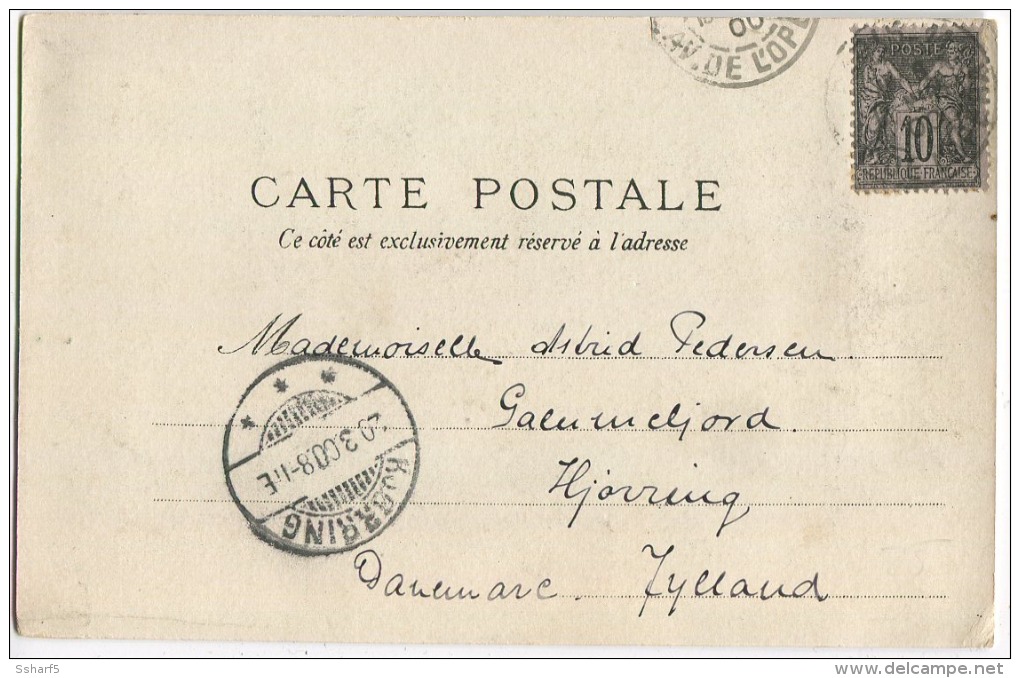 00
AV. DE L'OP
POSTE
10
REPUBLIQUE FRANÇAISE
CARTE POSTALE
Ce côté est exclusivement réservé à l'adresse
Mademoiselle Astrid Pedersen
Gaemmeljord.
Hjörring
Danemarc. Jylland
20.3.00.8-11E
HJØRRING
Ssharf5
delcampe.net